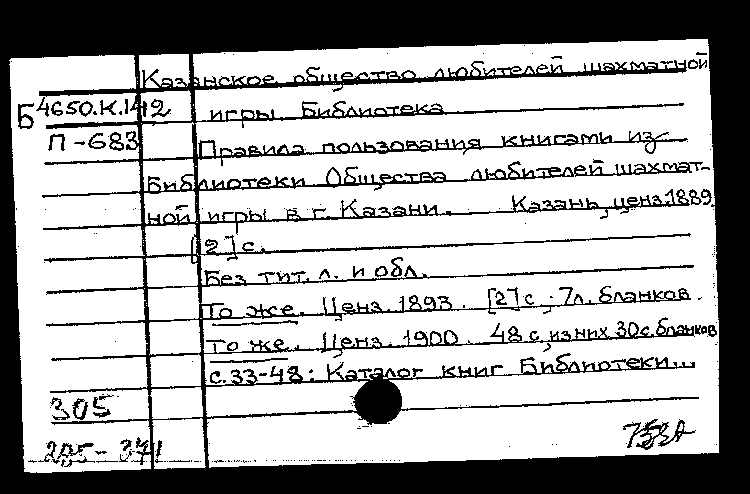 Казанское общество любителей шахматной
Б 4650.К.1412 игры. Библиотека
П-683
Правила пользования книгами из
Библиотеки Общества любителей шахмат-
ной игры в г. Казани. Казань, ценз. 1889.
[2] с.
Без тит. л. и обл.
То же. Ценз. 1893. [2] с., 7 л. бланков.
То же. Ценз. 1900. 48 с., из них 30 с. бланков
с. 33-48: Каталог книг Библиотеки...
305